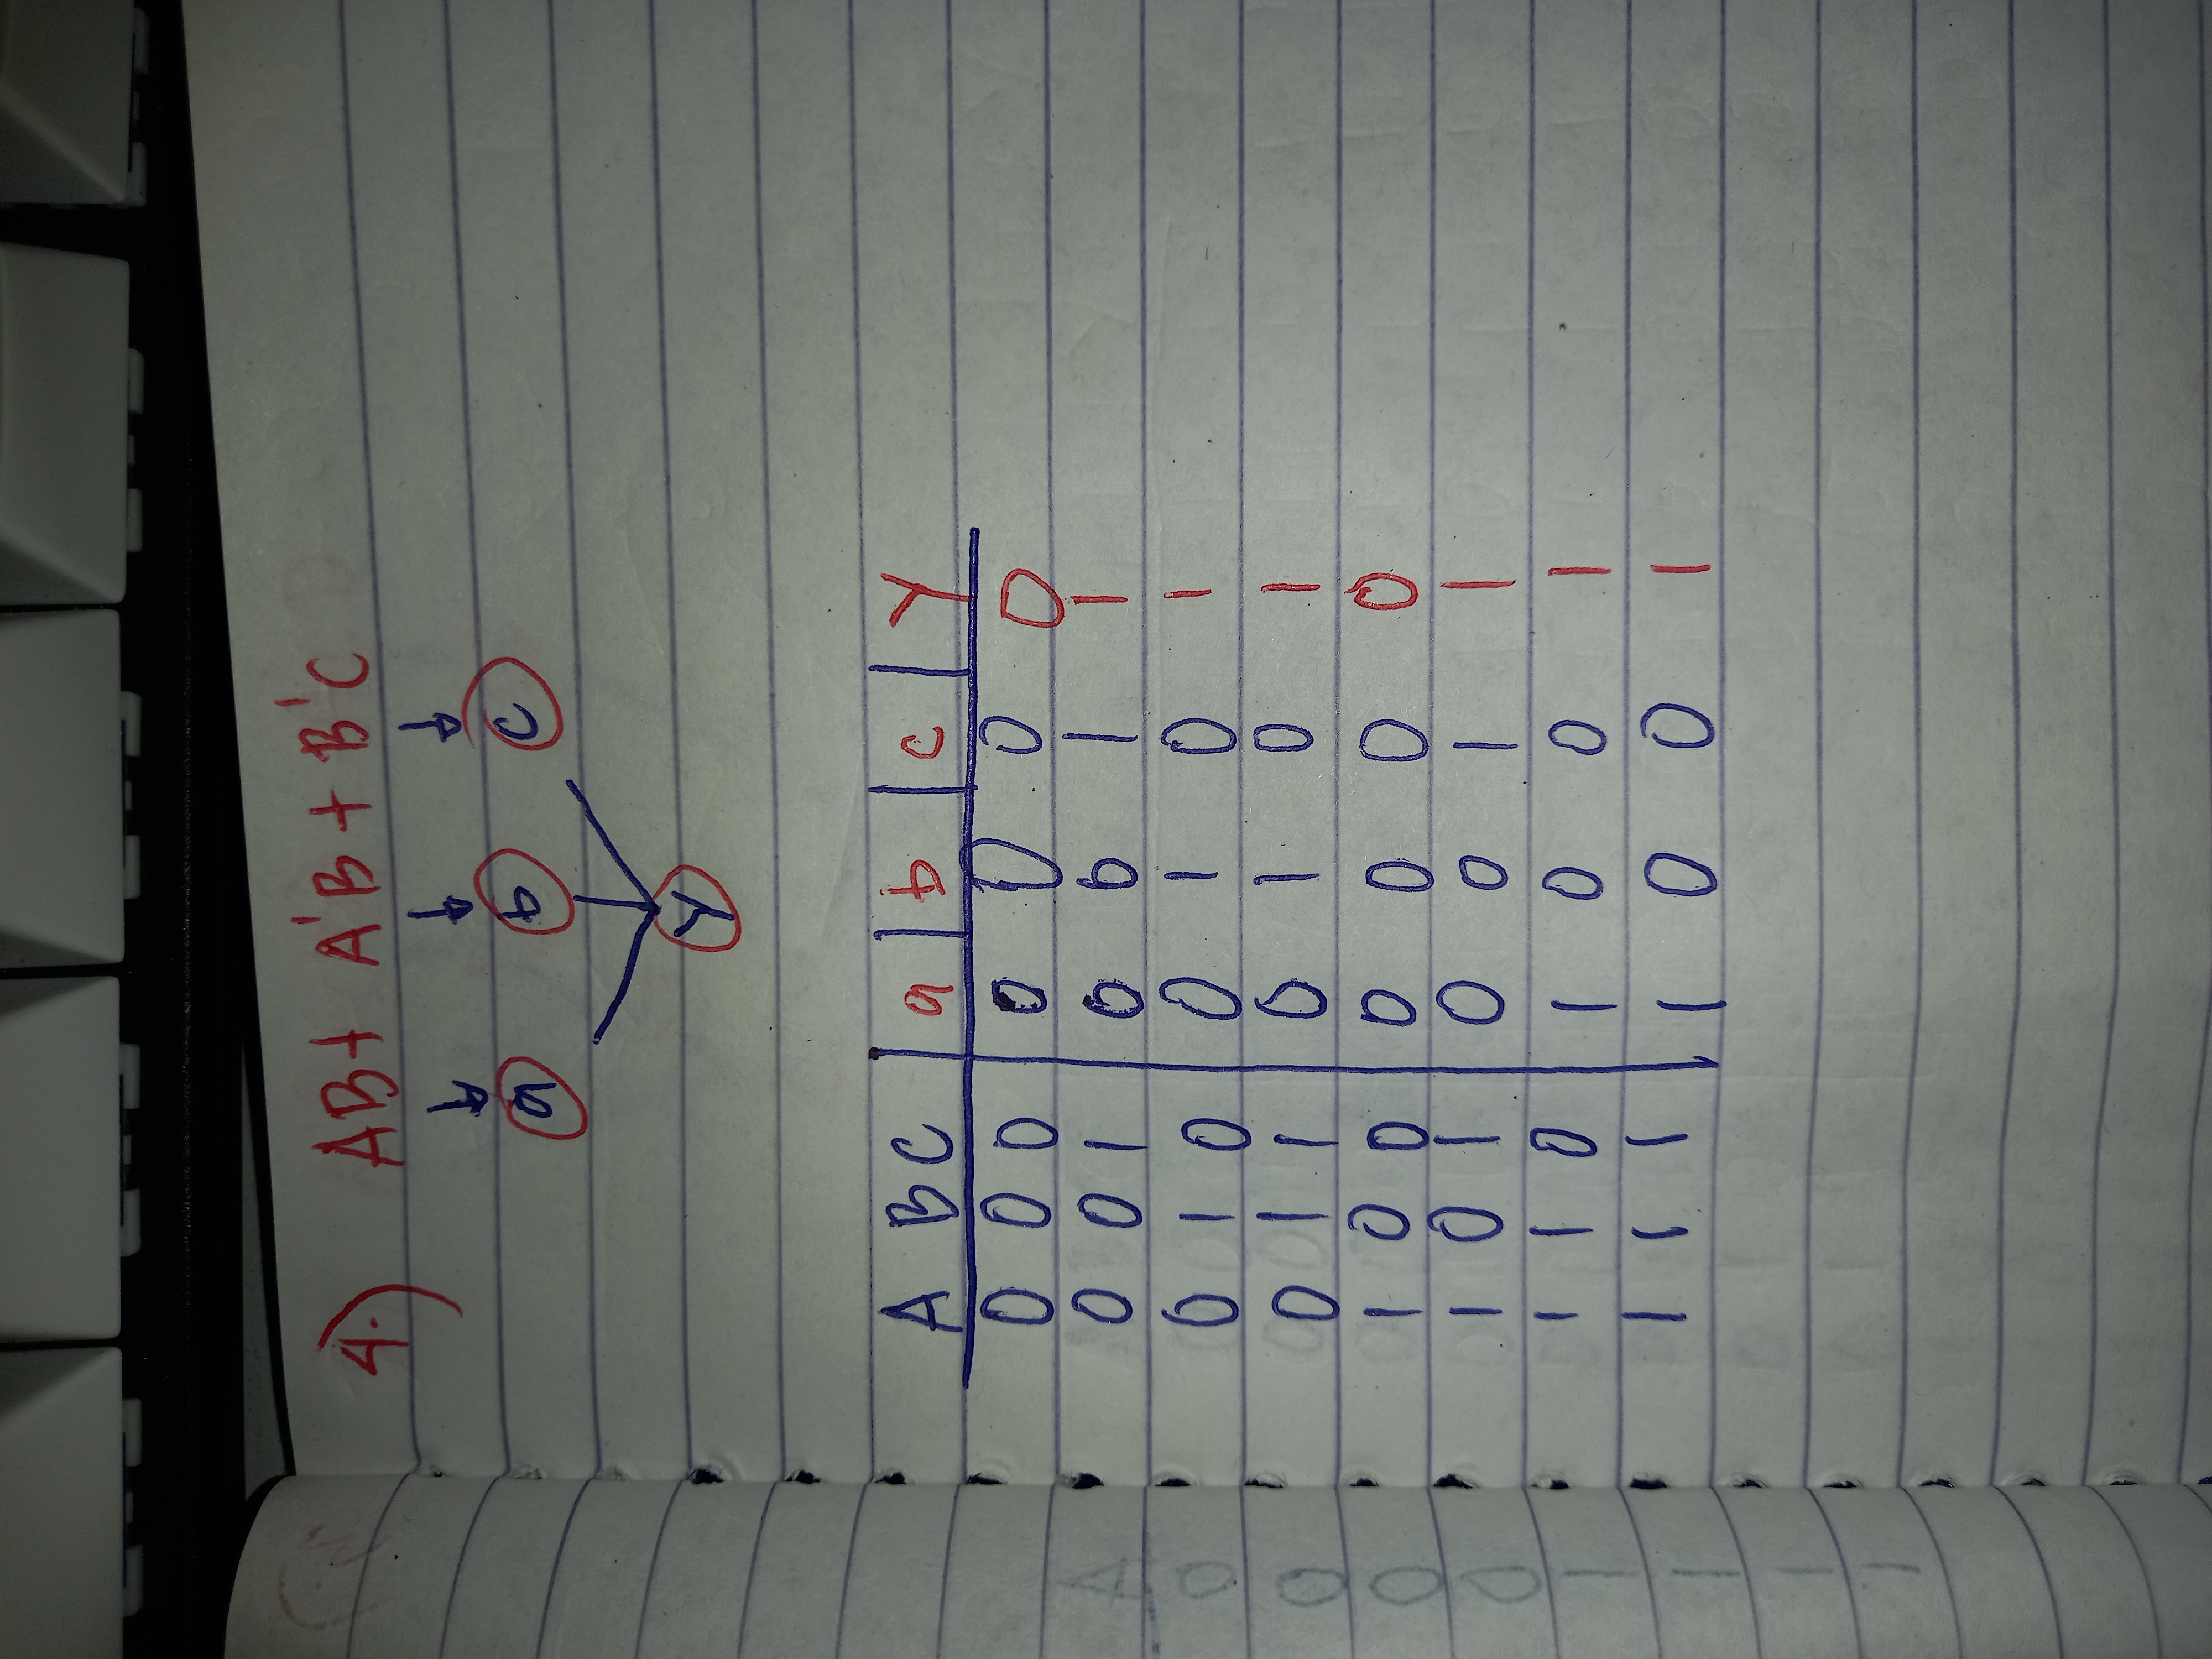 4.) AB + A'B + B'C
a b c
Y
A B C a b c Y
0 0 0 0 0 0 0
0 0 1 0 0 1 1
0 1 0 0 1 0 1
0 1 1 0 1 0 1
1 0 0 0 0 0 0
1 0 1 0 0 1 1
1 1 0 1 0 0 1
1 1 1 1 0 0 1
A
0
0
0
0
1
1
1
1